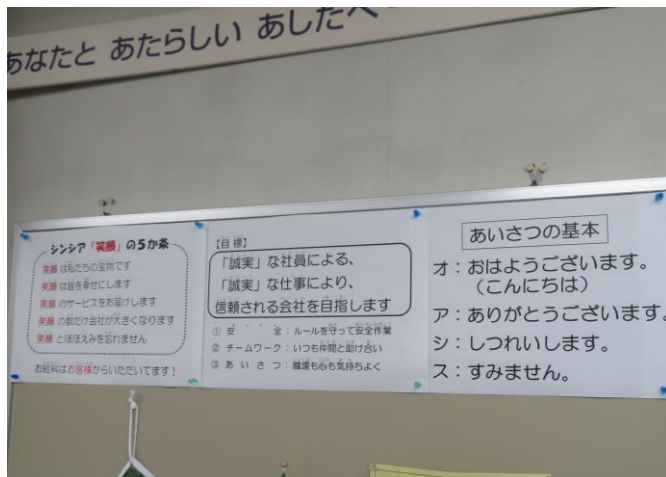 あなたと あたらしい あしたへ
シンシア「笑顔」の5か条
笑顔 は私たちの宝物です
笑顔 は皆を幸せにします
笑顔 のサービスをお届けします
笑顔 の数だけ会社が大きくなります
笑顔 とほほえみを忘れません
お給料はお客様からいただいてます！
【目 標】
「誠実」な社員による、
「誠実」な仕事により、
信頼される会社を目指します
① 安　　全：ルールを守って安全作業
② チームワーク：いつも仲間と助け合い
③ あ い さ つ：職場も心も気持ちよく
あいさつの基本
オ：おはようございます。
（こんにちは）
ア：ありがとうございます。
シ：しつれいします。
ス：すみません。